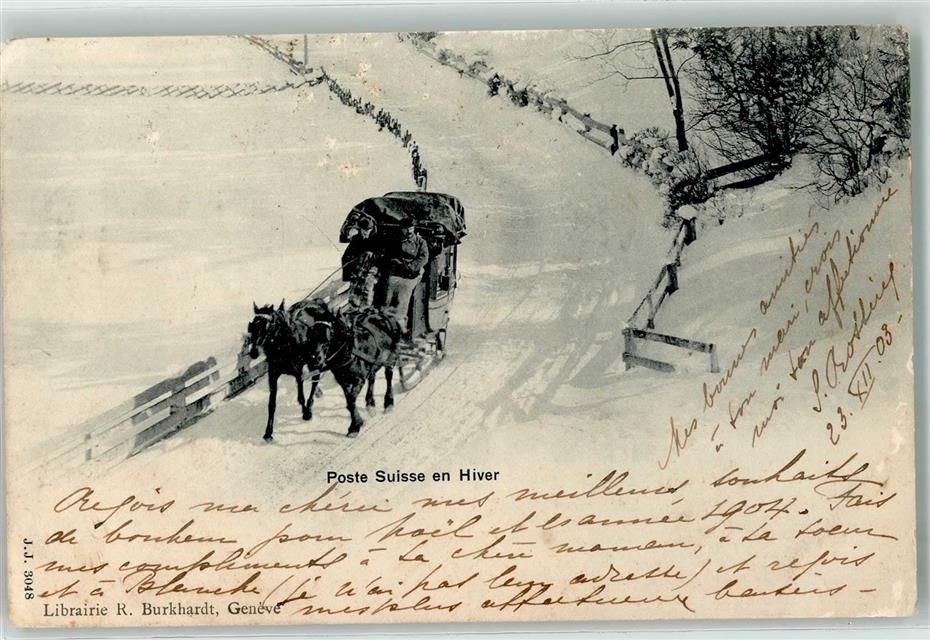 Poste Suisse en Hiver
Reçois ma chérie mes meilleurs souhaits
de bonheur pour Noël et l'année 1904. Fais
mes compliments à ta chère maman, à ta soeur
et à Blanche (je n'ai pas leur adresse) et reçois
mes plus affectueux baisers -
Mes bonnes amitiés
à ton mari, crois
moi ton affectionnée
S.
23. XII. 03.
J.J. 3048
Librairie R. Burkhardt, Genève